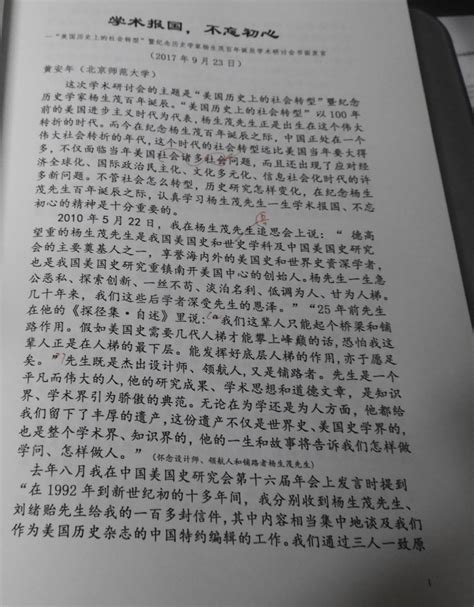 学术报国，不忘初心
—“美国历史上的社会转型”暨纪念历史学家杨生茂百年诞辰学术研讨会书面发言
（2017年9月23日）
黄安年（北京师范大学）
这次学术研讨会的主题是“美国历史上的社会转型”暨纪念
历史学家杨生茂百年诞辰。“美国历史上的社会转型”以100年
前的美国进步主义时代为代表，杨生茂先生正是出生在这个伟大
转折的时代。而今在纪念杨生茂百年诞辰之际，中国正处在一个
伟大社会转折的年代，这个时代的社会转型远比美国当年要大得
多，不仅面临当年美国社会诸多社会问题，而且还出现了应对经
济全球化、国际政治民主化、文化多元化、信息社会化时代的许
多新问题。不管社会怎么转型，历史研究怎样变化，在纪念杨生
茂先生百年诞辰之际，认真学习杨生茂先生一生学术报国、不忘
初心的精神是十分重要的。
2010年5月22日，我在杨生茂先生追思会上说：“ 德高
望重的杨生茂先生是我国美国史和世史学科及中国美国史研究
会的主要奠基人之一，享誉海内外的美国史和世界史资深学者，
也是我国美国史研究重镇南开美国史中心的创始人。杨先生一生急
公恶私、探索创新、一丝不苟、淡泊名利、低调为人、甘为人梯。
几十年来，我们这些后学者深受先生的恩泽。” “25年前先生
在他的《探径集·自述》里说：“我们这辈人只能起个桥梁和铺
路作用。假如美国史需要几代人梯才能攀上峰巅的话，恐怕我这
辈人正是在人梯的最下层。能发挥好底层人梯的作用，亦于愿足
矣。”先生既是杰出设计师、领航人，又是铺路者。先生是一个
平凡而伟大的人，他的研究成果、学术思想和道德文章，是知识
界、学术界引为骄傲的典范。无论在为学还是为人方面，他都给
我们留下了丰厚的遗产，这份遗产不仅是世界史、美国史学界的，
也是整个学术界、知识界的，他的一生和故事将告诉我们怎样做
学问、怎样做人。”（怀念设计师、领航人和铺路者杨生茂先生）
去年八月我在中国美国史研究会第十六届年会上发言时提到
“在1992年到新世纪初的十多年间，我分别收到杨生茂先生、
刘绪贻先生给我的一百多封信件，其中内容相当集中地谈及我们
作为美国历史杂志的中国特约编辑的工作。我们通过三人一致原
1